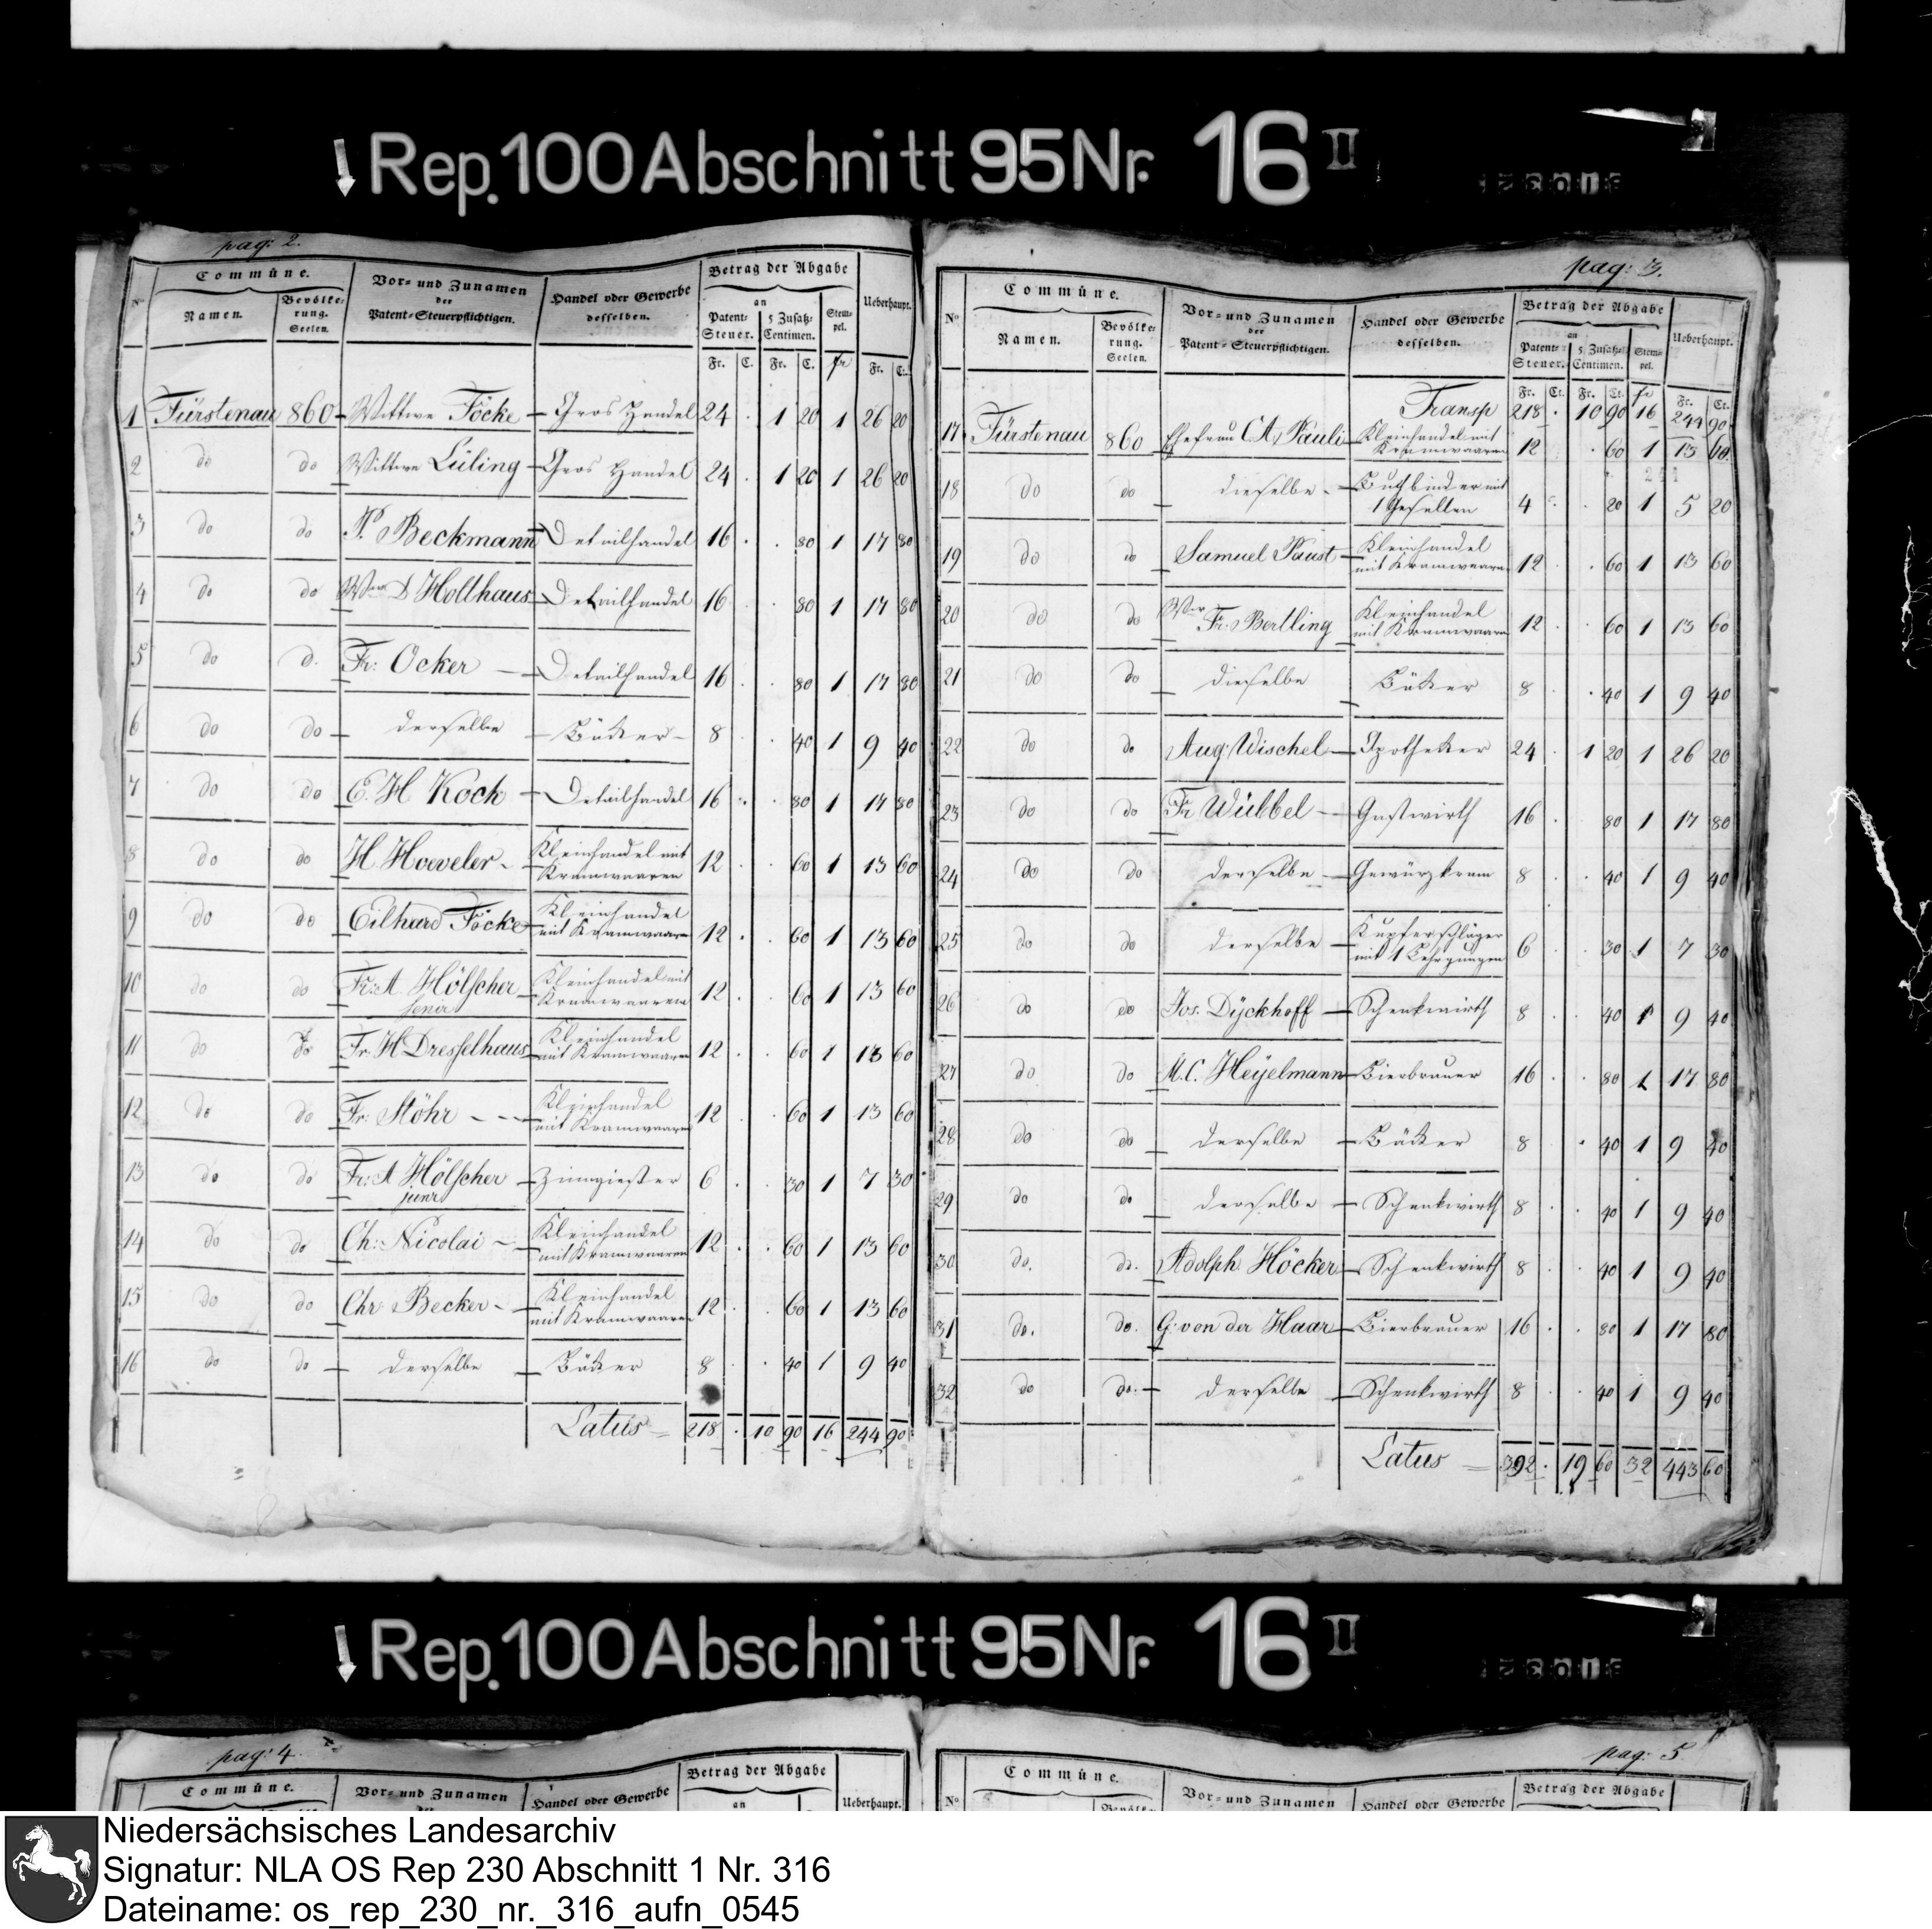 Rep. 100 Abschnitt 95 Nr. 16 II
pag: 2.
No Commüne. Vor- und Zunamen der Patent-Steuerpflichtigen. Handel oder Gewerbe desselben. Betrag der Abgabe Ueberhaupt.
Namen. Bevölkerung. Seelen. an Patent-Steuer. 5 Zusatz-Centimen. Stempel.
Fr. C. Fr. C. fr Fr. Ct.
1 Fürstenau 860 Wittwe Föcke Gros Handel 24 . 1 20 1 26 20
2 do do Wittwe Lüling Gros Handel 24 . 1 20 1 26 20
3 do do P. Beckmann Detailhandel 16 . . 80 1 17 80
4 do do Wwe D Hollhaus Detailhandel 16 . . 80 1 17 80
5 do d. Fr: Ocker Detailhandel 16 . . 80 1 17 80
6 do do derselbe Bäcker 8 . . 40 1 9 40
7 do do E. H Koch Detailhandel 16 . . 80 1 17 80
8 do do H. Hoeveler Kleinhandel mit Kramwaaren 12 . . 60 1 13 60
9 do do Eilhard Föcke Kleinhandel mit Kramwaaren 12 . . 60 1 13 60
10 do do Fr: A. Hölscher senir Kleinhandel mit Kramwaaren 12 . . 60 1 13 60
11 do do Fr. H Dresselhaus Kleinhandel mit Kramwaaren 12 . . 60 1 13 60
12 do do Fr: Stöhr Kleinhandel mit Kramwaaren 12 . . 60 1 13 60
13 do do Fr: A Hölscher junr Zinngiesser 6 . . 30 1 7 30
14 do do Ch: Nicolai Kleinhandel mit Kramwaaren 12 . . 60 1 13 60
15 do do Chr Becker Kleinhandel mit Kramwaaren 12 . . 60 1 13 60
16 do do derselbe Bäcker 8 . . 40 1 9 40
Latus 218 . 10 90 16 244 90
pag: 3.
No Commüne. Vor- und Zunamen der Patent-Steuerpflichtigen. Handel oder Gewerbe desselben. Betrag der Abgabe Ueberhaupt.
Namen. Bevölkerung. Seelen. an Patent-Steuer. 5 Zusatz-Centimen. Stempel.
Fr. Ct. Fr. Ct. fr Fr. Ct.
Transp 218 . 10 90 16 244 90
17 Fürstenau 860 Ehefrau C A, Pauli Kleinhandel mit Kramwaaren 12 . 60 1 13 60
18 do do dieselbe Buchbinder mit 1 Gesellen 4 . . 20 1 5 20
19 do do Samuel Paust Kleinhandel mit Kramwaaren 12 . . 60 1 13 60
20 do do Wwe Fr: Bertling Kleinhandel mit Kramwaaren 12 . . 60 1 13 60
21 do do dieselbe Bäcker 8 . . 40 1 9 40
22 do do Aug: Wischel Apotheker 24 . 1 20 1 26 20
23 do do Fr Wübbel Gastwirth 16 . 80 1 17 80
24 do do derselbe Gewürzkram 8 . . 40 1 9 40
25 do do derselbe Kupferschläger mit 1 Lehrjungen 6 . . 30 1 7 30
26 do do Jos. Dÿckhoff Schenkwirth 8 . . 40 1 9 40
27 do do M. C. Heÿelmann Bierbrauer 16 . . 80 1 17 80
28 do do derselbe Bäcker 8 . 40 1 9 40
29 do do derselbe Schenkwirth 8 . . 40 1 9 40
30 do. do. Adolph Höcker Schenkwirth 8 . . 40 1 9 40
31 do. do. G: von der Haar Bierbrauer 16 . . 80 1 17 80
32 do do. derselbe Schenkwirth 8 . . 40 1 9 40
Latus 392 . 19 60 32 443 60
Rep. 100 Abschnitt 95 Nr. 16 II
pag: 4
Commüne. Vor- und Zunamen Handel oder Gewerbe Betrag der Abgabe an Ueberhaupt.
pag: 5
No Commüne. Vor- und Zunamen Handel oder Gewerbe Betrag der Abgabe
Niedersächsisches Landesarchiv
Signatur: NLA OS Rep 230 Abschnitt 1 Nr. 316
Dateiname: os_rep_230_nr._316_aufn_0545